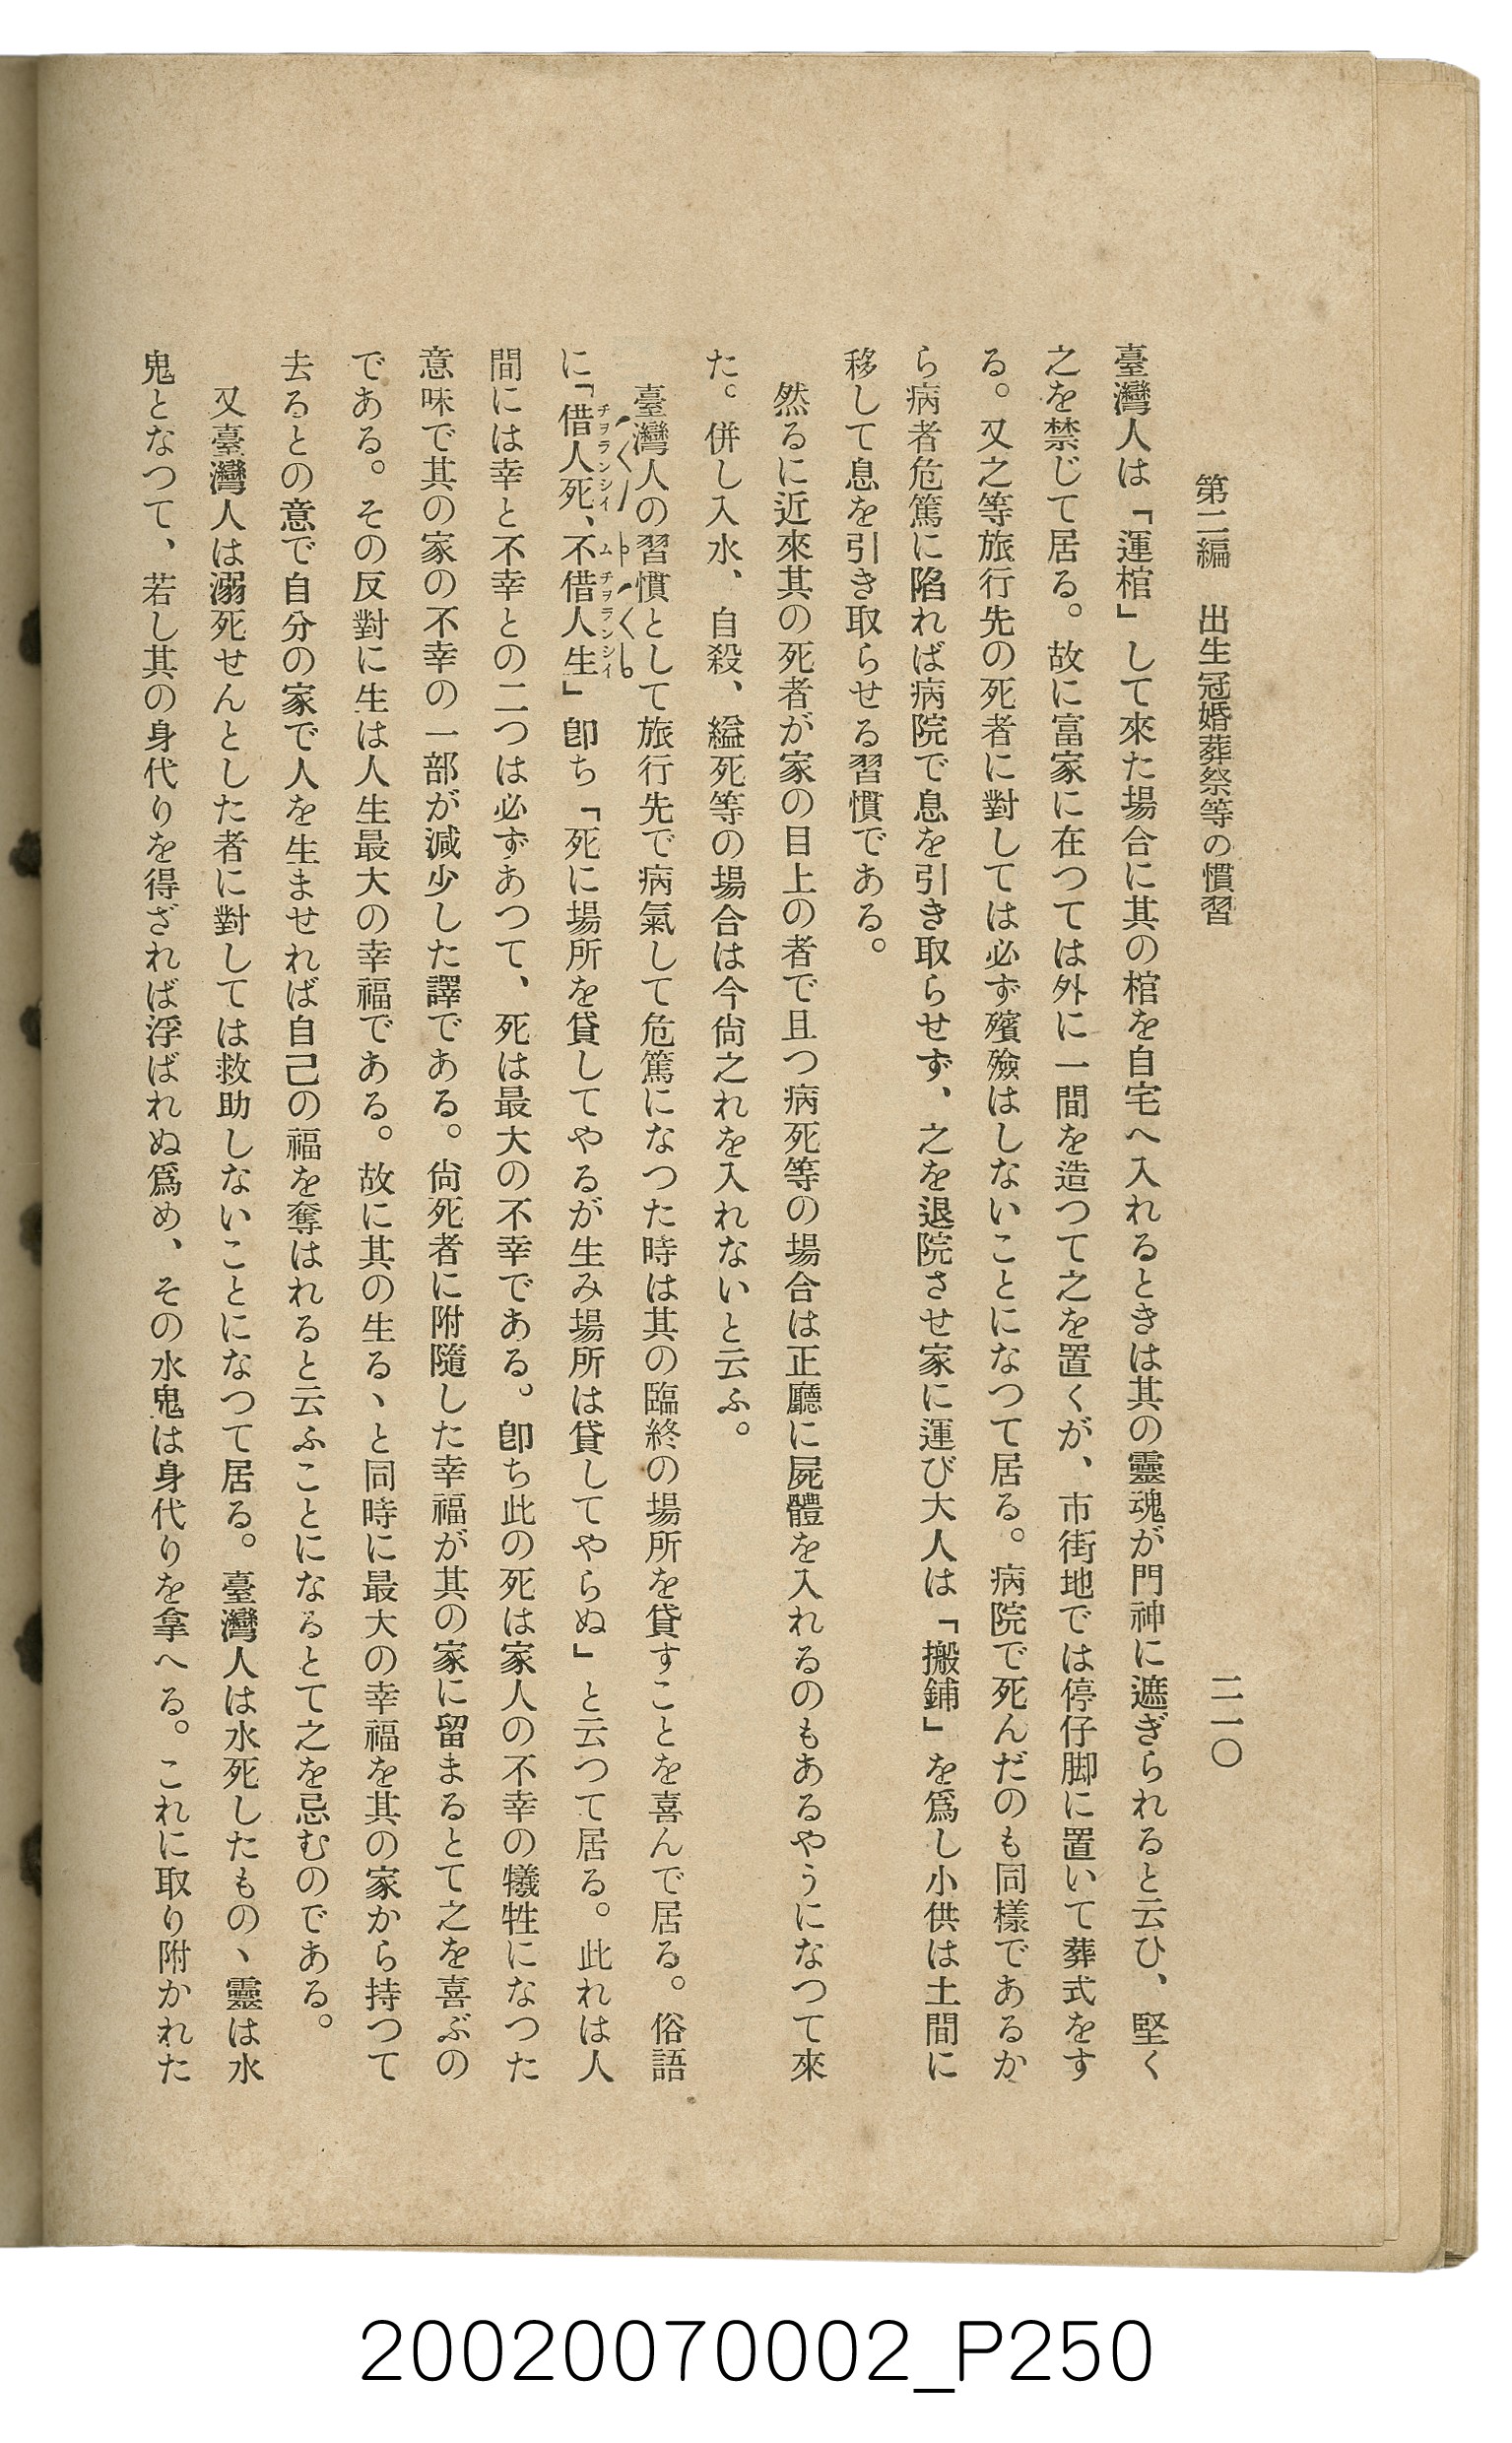 第二編　出生冠婚葬祭等の慣習
二一〇
臺灣人は「運棺」して來た場合に其の棺を自宅へ入れるときは其の靈魂が門神に遮ぎられると云ひ、堅く
之を禁じて居る。故に富家に在つては外に一間を造つて之を置くが、市街地では停仔脚に置いて葬式をす
る。又之等旅行先の死者に對しては必ず殯殮はしないことになつて居る。病院で死んだのも同樣であるか
ら病者危篤に陷れば病院で息を引き取らせず、之を退院させ家に運び大人は「搬鋪」を爲し小供は土間に
移して息を引き取らせる習慣である。
然るに近來其の死者が家の目上の者で且つ病死等の場合は正廳に屍體を入れるのもあるやうになつて來
た。併し入水、自殺、縊死等の場合は今尙之れを入れないと云ふ。
臺灣人の習慣として旅行先で病氣して危篤になつた時は其の臨終の場所を貸すことを喜んで居る。俗語
に「借人死、不借人生」卽ち「死に場所を貸してやるが生み場所は貸してやらぬ」と云つて居る。此れは人
チヲランシイ　ムチヲランシイ
間には幸と不幸との二つは必ずあつて、死は最大の不幸である。卽ち此の死は家人の不幸の犧牲になつた
意味で其の家の不幸の一部が減少した譯である。尙死者に附隨した幸福が其の家に留まるとて之を喜ぶの
である。その反對に生は人生最大の幸福である。故に其の生るヽと同時に最大の幸福を其の家から持つて
去るとの意で自分の家で人を生ませれば自己の福を奪はれると云ふことになるとて之を忌むのである。
又臺灣人は溺死せんとした者に對しては救助しないことになつて居る。臺灣人は水死したものヽ靈は水
鬼となつて、若し其の身代りを得ざれば浮ばれぬ爲め、その水鬼は身代りを拿へる。これに取り附かれた
20020070002_P250